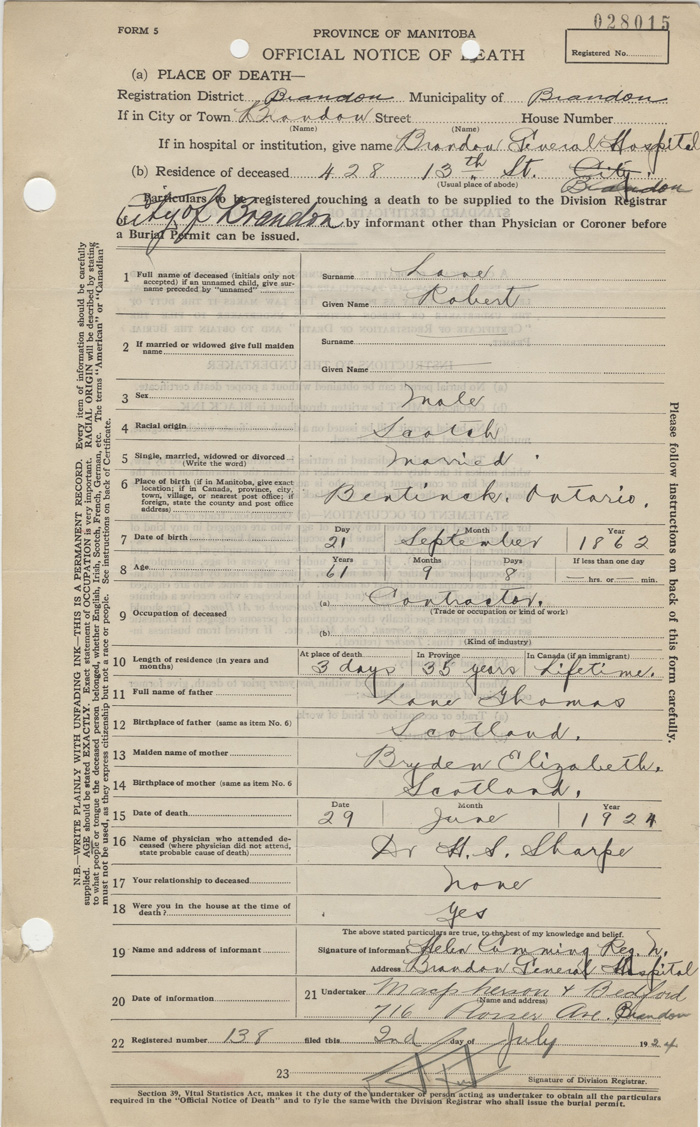 028015
FORM 5
PROVINCE OF MANITOBA
OFFICIAL NOTICE OF DEATH
Registered No.
(a) PLACE OF DEATH—
Registration District Brandon Municipality of Brandon
If in City or Town Brandon Street House Number
(Name) (Name)
If in hospital or institution, give name Brandon General Hospital
(b) Residence of deceased 428 13th St. City.
(Usual place of abode) Brandon
Particulars to be registered touching a death to be supplied to the Division Registrar
City of Brandon by informant other than Physician or Coroner before
a Burial Permit can be issued.
1 Full name of deceased (initials only not accepted) if an unnamed child, give surname preceded by "unnamed"
Surname Lane
Given Name Robert
2 If married or widowed give full maiden name
Surname
Given Name
3 Sex Male
4 Racial origin Scotch
5 Single, married, widowed or divorced (Write the word) Married
6 Place of birth (if in Manitoba, give exact location; if in Canada, province, city, town, village, or nearest post office; if foreign, state the county and post office address) Bentinck. Ontario.
7 Date of birth Day 21 Month September Year 1862
8 Age Years 61 Months 9 Days 8 If less than one day hrs. or min.
9 Occupation of deceased (a) Contractor.
(Trade or occupation or kind of work)
(b)
(Kind of industry)
10 Length of residence (in years and months) At place of death 3 days In Province 35 years In Canada (if an immigrant) Lifetime.
11 Full name of father Lane Thomas
12 Birthplace of father (same as item No. 6) Scotland.
13 Maiden name of mother Bryden Elizabeth.
14 Birthplace of mother (same as item No. 6 Scotland.
15 Date of death Date 29 Month June Year 1924
16 Name of physician who attended deceased (where physician did not attend, state probable cause of death) Dr H. S. Sharpe
17 Your relationship to deceased None
18 Were you in the house at the time of death? Yes
The above stated particulars are true, to the best of my knowledge and belief.
19 Name and address of informant Signature of informant Helen Cumming Reg. N.
Address Brandon General Hospital
20 Date of information
21 Undertaker Macpherson & Bedford
(Name and address)
716 Rosser Ave. Brandon
22 Registered number 138 filed this 2nd day of July 1924
23 Signature of Division Registrar.
Section 39, Vital Statistics Act, makes it the duty of the undertaker or person acting as undertaker to obtain all the particulars
required in the "Official Notice of Death" and to fyle the same with the Division Registrar who shall issue the burial permit.
N.B.—WRITE PLAINLY WITH UNFADING INK—THIS IS A PERMANENT RECORD. Every item of information should be carefully
supplied. AGE should be stated EXACTLY. Exact statement of OCCUPATION is very important. RACIAL ORIGIN will be described by stating
to what people or tongue the deceased person belonged, whether English, Irish, Scotch, French, German, etc. The terms "American" or "Canadian"
must not be used, as they express citizenship but not a race or people. See instructions on back of Certificate.
Please follow instructions on back of this form carefully.